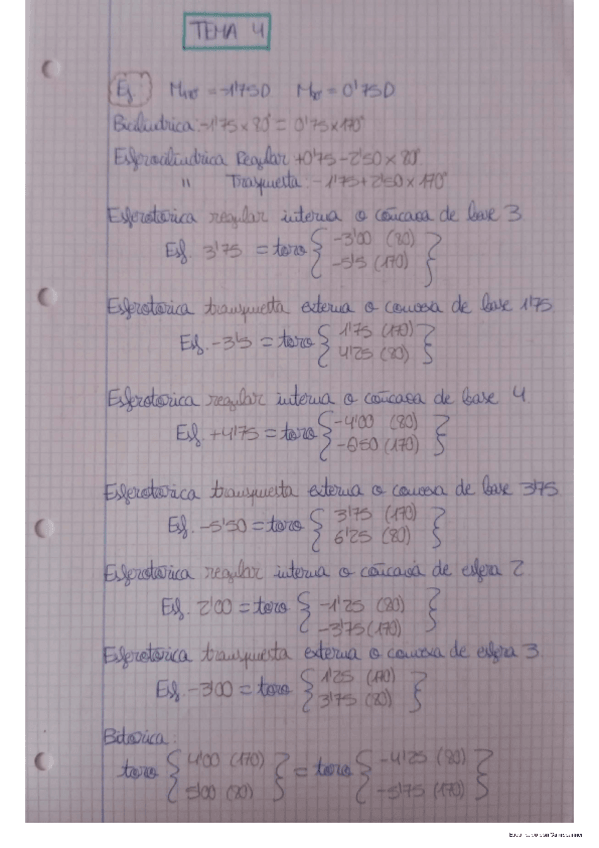 TEMA 4
Ej: M170 = -1'75D M80 = 0'75D
Bicilíndrica: -1'75 x 80° = 0'75 x 170°
Esferocilíndrica Regular +0'75 - 2'50 x 80°
" Traspuesta: -1'75 + 2'50 x 170°
Esferotórica regular interna o cóncava de base 3
Esf. 3'75 = toro { -3'00 (80) }
-5'5 (170)
Esferotórica transpuesta externa o convexa de base 1'75
Esf. -3'5 = toro { 1'75 (170) }
4'25 (80)
Esferotórica regular interna o cóncava de base 4
Esf. +4'75 = toro { -4'00 (80) }
-6'50 (170)
Esferotórica transpuesta externa o convexa de base 3'75
Esf. -5'50 = toro { 3'75 (170) }
6'25 (80)
Esferotórica regular interna o cóncava de esfera 2
Esf. 2'00 = toro { -1'25 (80) }
-3'75 (170)
Esferotórica transpuesta externa o convexa de esfera 3
Esf. -3'00 = toro { 1'25 (170) }
3'75 (80)
Bitórica:
toro { 4'00 (170) } = toro { -4'25 (80) }
5'00 (80) -5'75 (170)